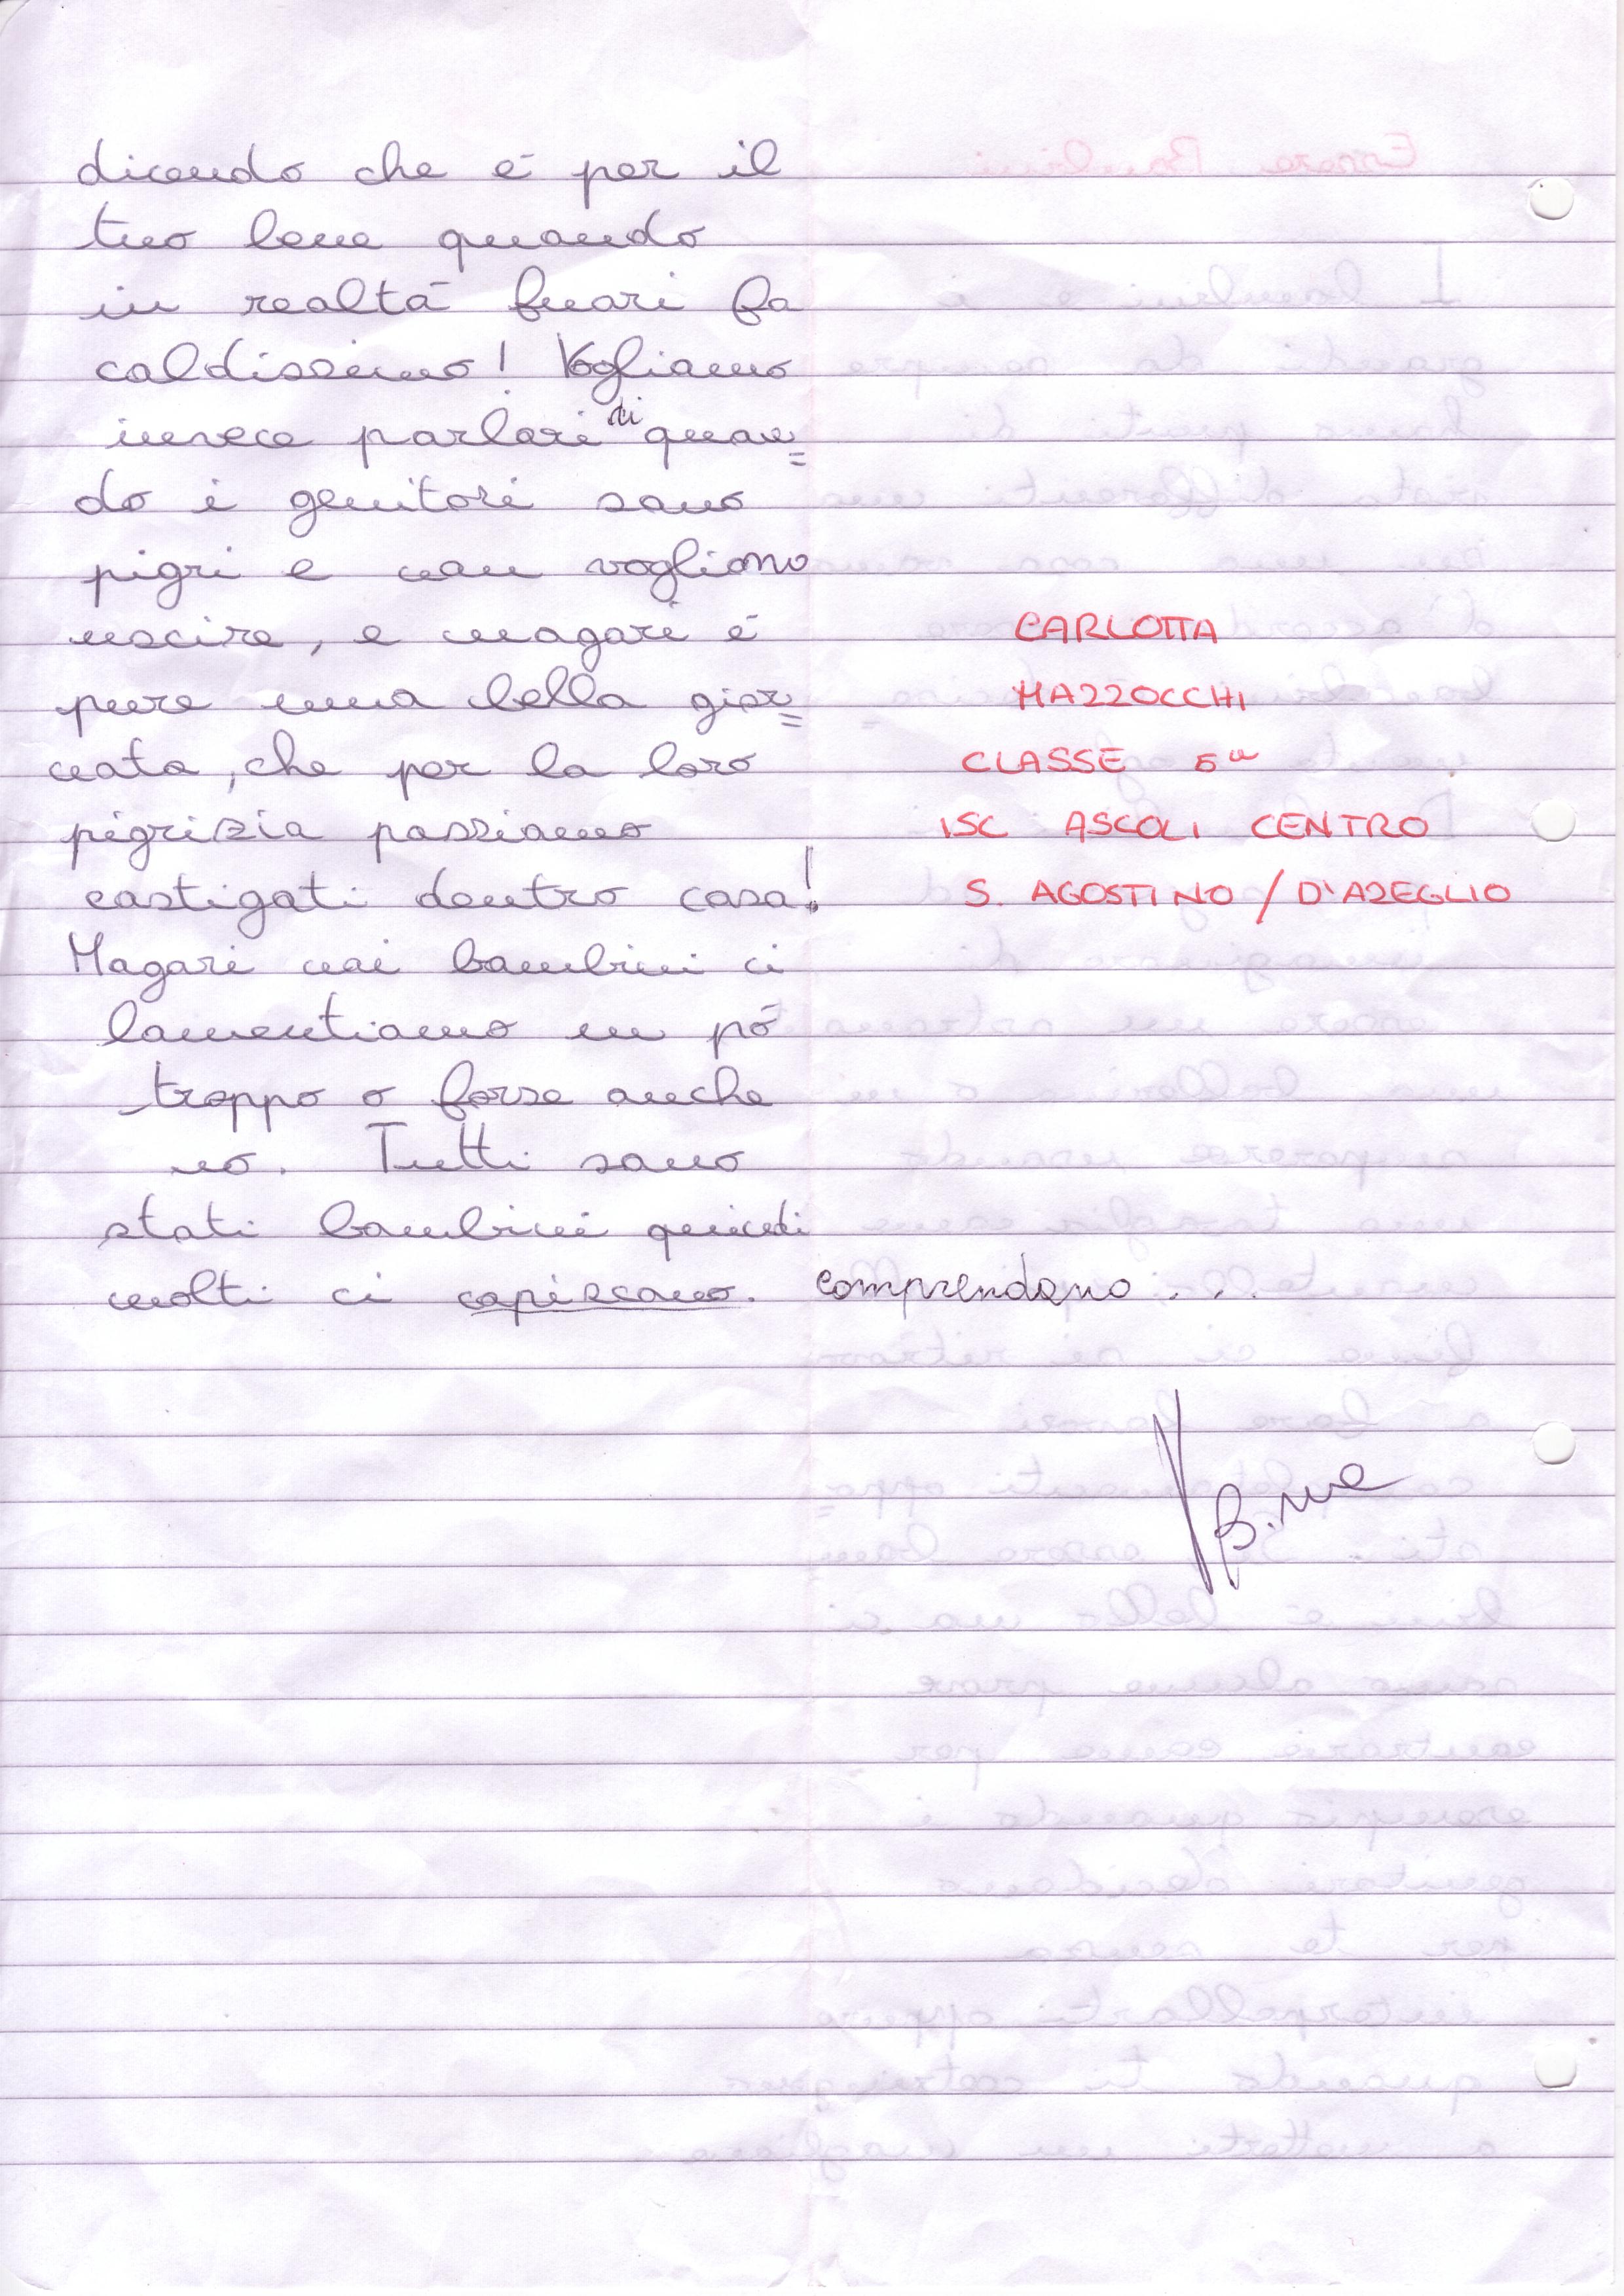 dicendo che è per il
tuo bene quando
in realtà fuori fa
caldissimo! Vogliamo
invece parlari di quan=
do i genitori sono
pigri e non vogliono
uscire, e magari è
pure una bella gior=
nata, che per la loro
pigrizia passiamo
castigati dentro casa!
Magari noi bambini ci
lamentiamo un pó
troppo o forse anche
no. Tutti sono
stati bambini quindi
molti ci capiscono. comprendono...
CARLOTTA
MAZZOCCHI
CLASSE 5ª
ISC ASCOLI CENTRO
S. AGOSTINO / D'AZEGLIO